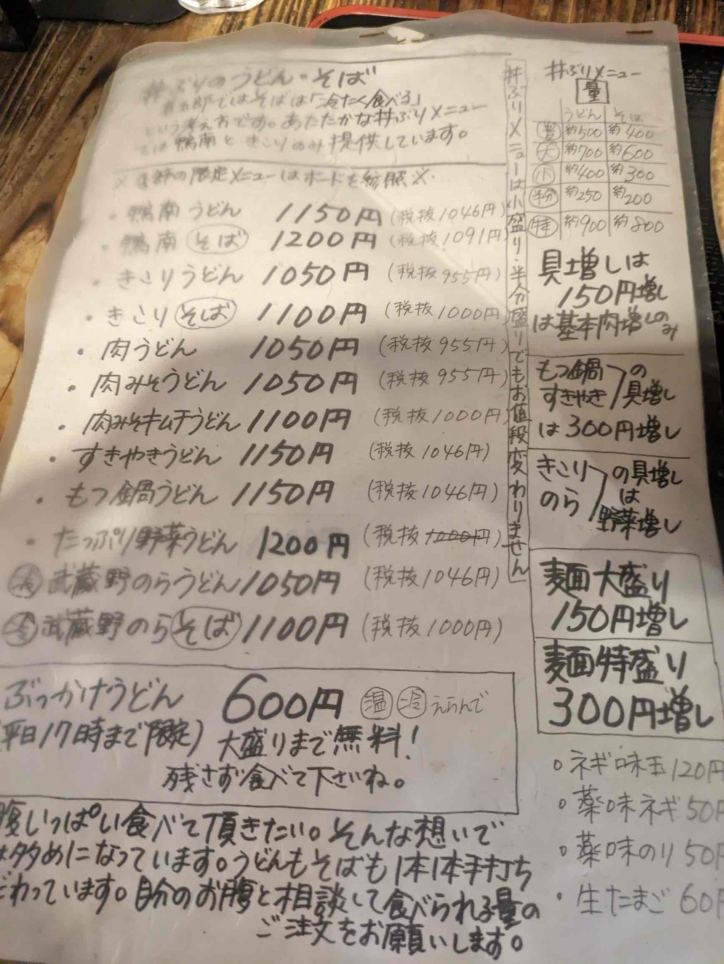 丼ぶりのうどん・そば
五郎ではそばは「冷たく食べる」
という考え方です。あたたかな丼ぶりメニュー
では鴨南ときこりのみ提供しています。
※季節の限定メニューはボードを参照※
・鴨南うどん 1150円(税抜1046円)
・鴨南そば 1200円(税抜1091円)
・きこりうどん 1050円(税抜955円)
・きこりそば 1100円(税抜1000円)
・肉うどん 1050円(税抜955円)
・肉みそうどん 1050円(税抜955円)
・肉みそキムチうどん 1100円(税抜1000円)
・すきやきうどん 1150円(税抜1046円)
・もつ鍋うどん 1150円(税抜1046円)
・たっぷり野菜うどん 1200円(税抜1000円)
冷武蔵野のらうどん 1050円(税抜1046円)
冷武蔵野のらそば 1100円(税抜1000円)
丼ぶりメニューは小盛り・半分盛りでもお値段変わりません
ぶっかけうどん 600円 温 冷 えらんで
(平日17時まで限定) 大盛りまで無料!
残さず食べて下さいね。
腹いっぱい食べて頂きたい。そんな想いで
多めになっています。うどんもそばも1本1本手打ち
わっています。自分のお腹と相談して食べられる量の
ご注文をお願いします。
丼ぶりメニュー
量
うどん そば
普 約500 約400
大 約700 約600
小 約400 約300
半分 約250 約200
特 約900 約800
具増しは
150円増し
は基本肉増しのみ
もつ鍋 すきやき の具増し
は300円増し
きこり のら の具増し
は
野菜増し
麺大盛り
150円増し
麺特盛り
300円増し
・ネギ味玉120円
・薬味ネギ50円
・薬味のり50円
・生たまご60円